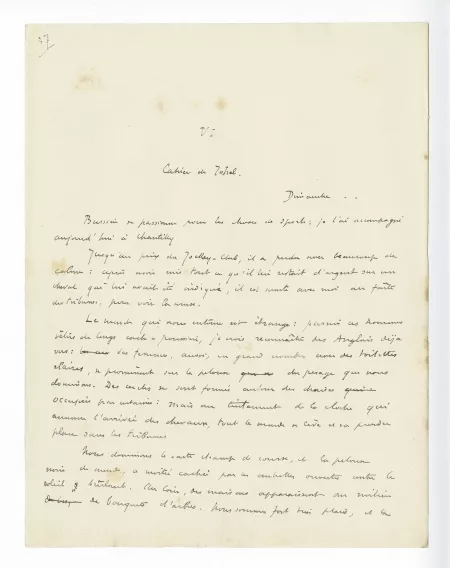 37
VI
Cahier de
Dimanche . .
se passionne pour les choses de sport ; je l'ai accompagné
aujourd'hui à Chantilly
Jusqu'au prix du Jockey-Club, il a perdu avec beaucoup de
calme : après avoir mis tout ce qu'il lui restait d'argent sur un
cheval qui lui avait été indiqué, il est monté avec moi au faîte
des tribunes, pour voir la course.
Le monde qui nous entoure est étrange : parmi ces hommes
vêtus de longs cache-poussière, je crois reconnaître des Anglais déjà
vus : des femmes, aussi, en grand nombre avec des toilettes
claires, se promènent sur la pelouse du pesage que nous
dominions. Des cercles se sont formés autour des chaises
occupées par : mais au tintement de la cloche qui
annonce l'arrivée des chevaux, tout le monde se lève et va prendre
place dans les tribunes
Nous dominons le vaste champ de course, et la pelouse
noire de monde, a moitié caché par les ombrelles ouvertes contre le
soleil brûlant. Au loin, des maisons apparaissent au milieu
de bouquets d'arbres. Nous sommes fort bien placés, et le